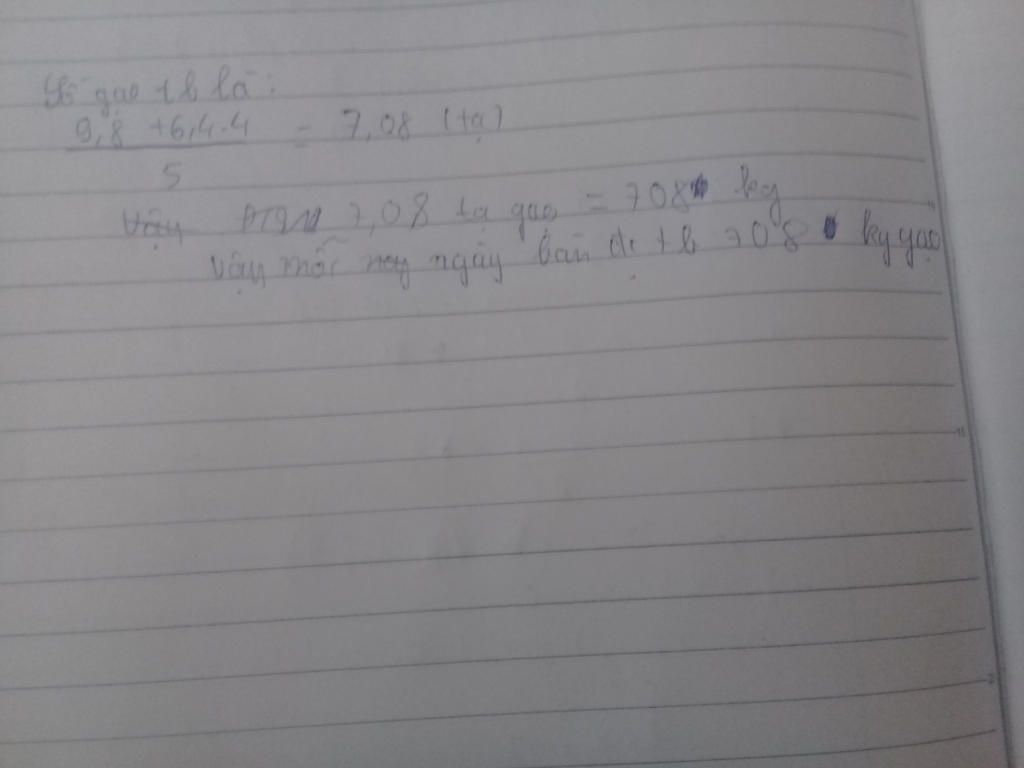 Số gạo tb là:
9,8 + 6,4.4 = 7,08 (tạ)
5
Vậy 7,08 tạ gạo = 708 kg
Vậy mỗi ngày bán đc tb 708 kg gạo